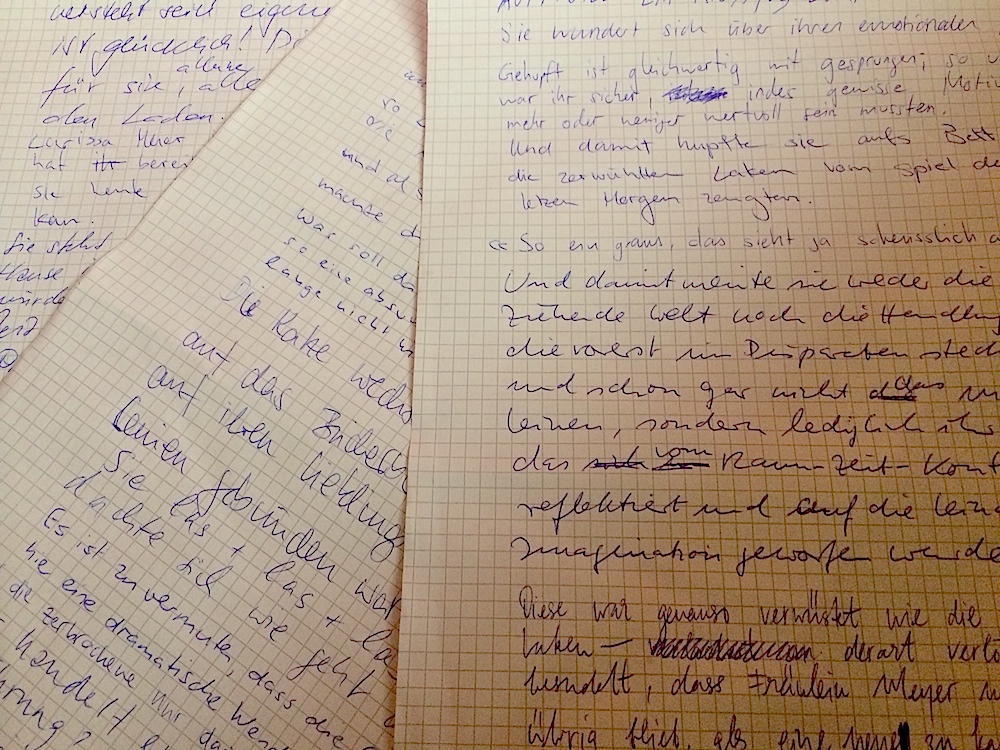 versteht sein eigene
ist glücklich! Di
alleine
für sie, alle
den Laden.
Clarissa Meier
hat berei
sie heute
kan.
Sie steht
Hause
würde
so
die
und als
machte d
Was soll da
so eine absu
lange nicht
Die Katze wechs
auf das Bücherr
auf ihren Liebling
Leinen gebunden war
Sie las + las + la
dachte sich wie geht
Es ist zu vermuten, dass die
hie eine dramatische Wen
die zerbrochene Uhr dai
handelt
Sie wundert sich über ihren emotionalen
Gehupft ist gleichwertig mit gesprungen, so
war ihr sicher, indes gewisse Motiv
mehr oder weniger wertvoll sein mussten.
Und damit hupfte sie aufs Bett
die zerwühlten Laken vom Spiel de
letzen Morgen zeugten.
« So ein graus, das sieht ja scheusslich a
Und damit meinte sie weder die
ziehende Welt noch die Handlun
die vorerst im Disparaten steck
und schon gar nicht das
leinen, sondern lediglich ihr
das vom Raum-Zeit-Kont
reflektiert und auf die Lein
Imagination geworfen wurde
Diese war genauso verwüstet wie die
Laken — derart verlo
besudelt, dass Fräulein Meyer
übrig blieb, als eine neue zu ka